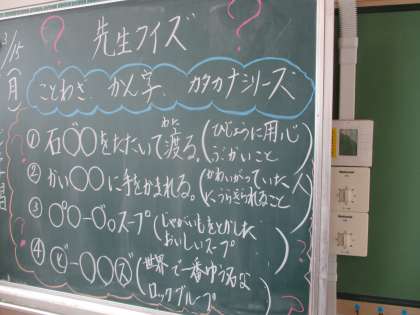 3/15
(月)
先生クイズ
ことわざ、かん字、カタカナシリーズ
① 石〇゛〇をたたいて渡る。(ひじょうに用心
わた
ぶかいこと
② かい〇〇に手をかまれる。(かわいがっていた人
にうらぎられること
③ 〇゜〇ー〇゛〇スープ(じゃがいもをとかした
おいしいスープ
④ ビー〇〇〇ズ(世界で一番ゆう名な
ロックグループ